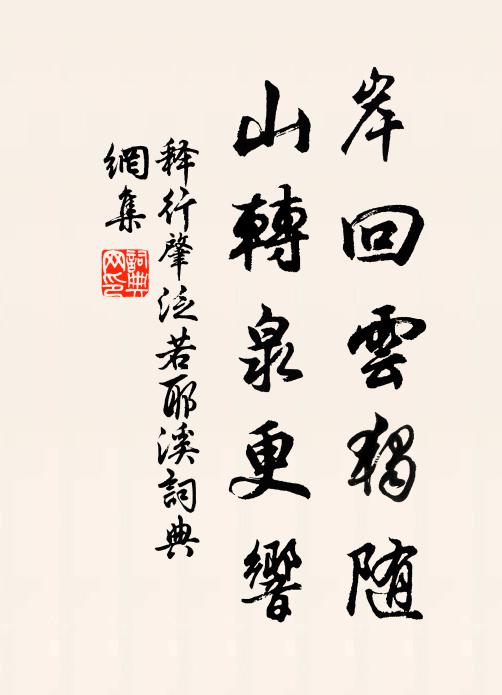 岸回雲獨随
山轉泉更響
释行肇泛若耶溪詞典
網集
詞典
网印